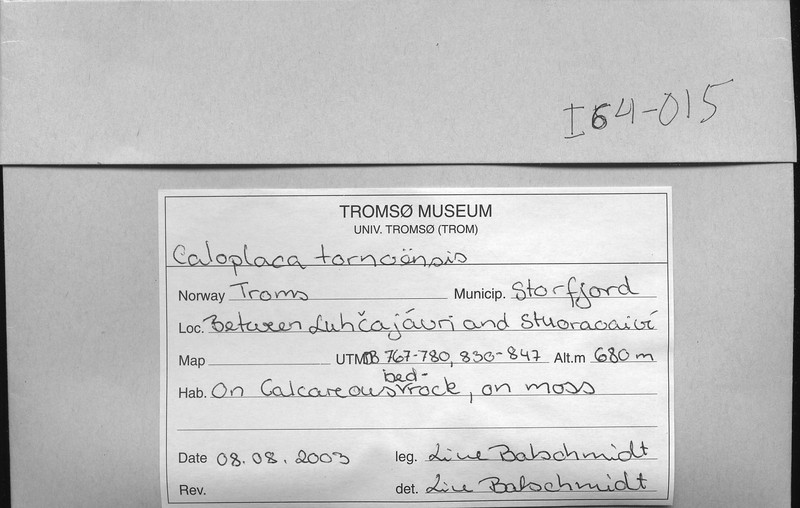 I64-015
TROMSØ MUSEUM
UNIV. TROMSØ (TROM)
Caloplaca tornoënsis
Norway Troms Municip. Storfjord
Loc. Between Luhčajávri and Stuoraoaivi
Map UTM DB 767-780, 830-847 Alt.m 680 m
Hab. On Calcareous bed-rock, on moss
Date 08.08.2003 leg. Line Balschmidt
Rev. det. Line Balschmidt